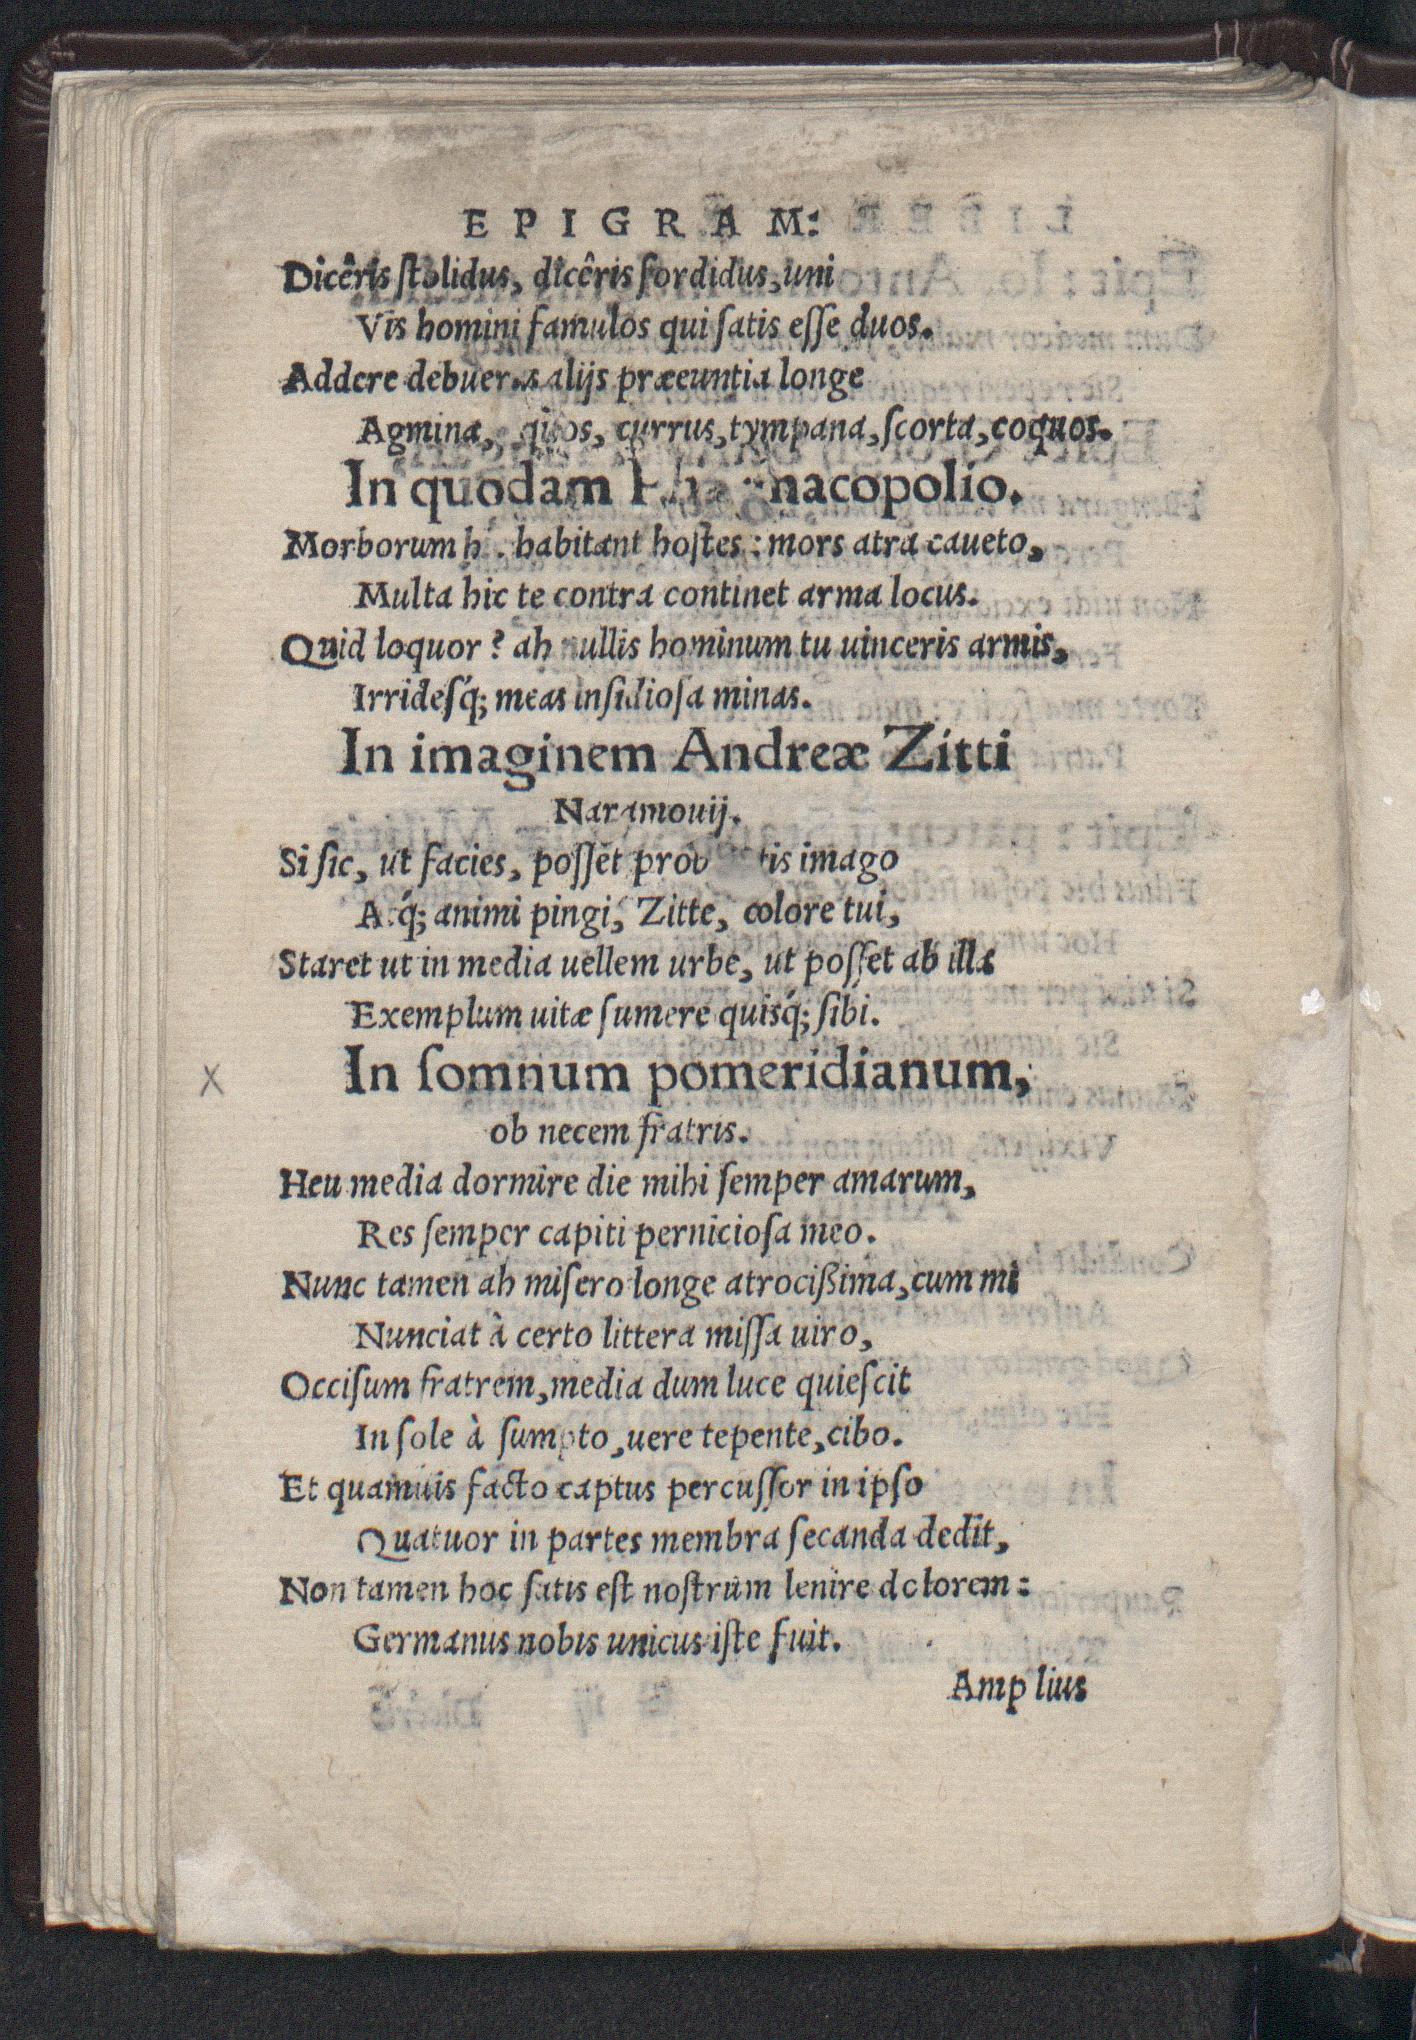 EPIGRAM:
Dicêris ſtolidus, dicêris ſordidus, uni
Vis homini famulos qui ſatis eſſe duos.
Addere alijs præeuntia longe
Agmina, currus, tympana, ſcorta, coquos.
In quodam
Morborum habitant hoſtes: mors atra caueto,
Multa hic te contra continet arma locus.
Quid loquor? ah nullis hominum tu uinceris armis,
Irrideſq́; meas inſidioſa minas.
In imaginem Andreæ Zitti
Naramouij.
Si ſic, ut facies, poſſet imago
Atq́; animi pingi, Zitte, colore tui,
Staret ut in media uellem urbe, ut poſſet ab illa
Exemplum uitæ ſumere quisq́; ſibi.
In ſomnum pomeridianum,
ob necem fratris.
Heu media dormire die mihi ſemper amarum,
Res ſemper capiti pernicioſa meo.
Nunc tamen ah miſero longe atrocißima, cum mi
Nunciat à certo littera miſſa uiro,
Occiſum fratrem, media dum luce quieſcit
In ſole à ſumpto, uere tepente, cibo.
Et quamuis facto captus percuſſor in ipſo
Quatuor in partes membra ſecanda dedit,
Non tamen hoc ſatis eſt noſtrum lenire dolorem:
Germanus nobis unicus iſte fuit.
Amplius